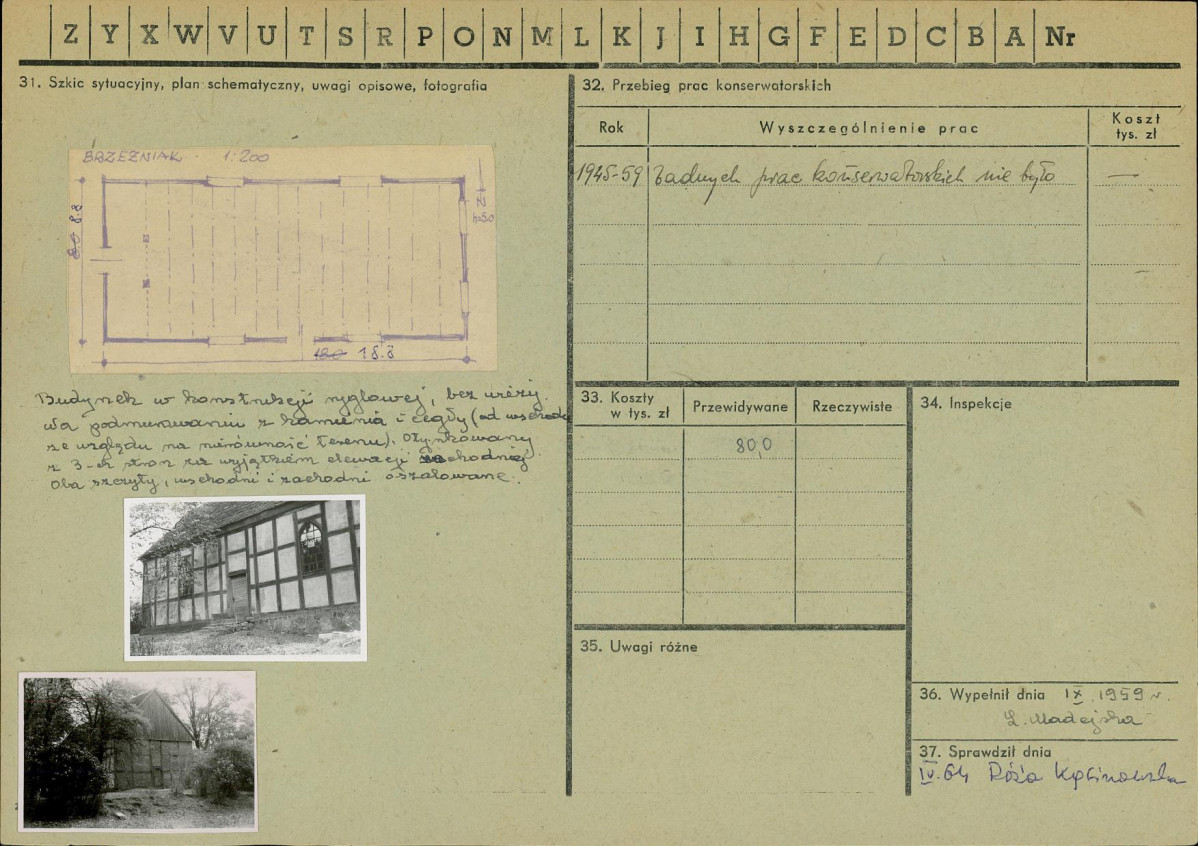 Z Y X W V U T S R P O N M L K J I H G F E D C B A Nr
31. Szkic sytuacyjny, plan schematyczny, uwagi opisowe, fotografia
BRZEŹNIAK · 1:200
8.8
N
h=5.0
18.8
Budynek w konstrukcji ryglowej, bez wieży.
Na podmurowaniu z kamienia i cegły (od wschodu
ze względu na nierówność terenu). Otynkowany
z 3-ch stron za wyjątkiem elewacji zachodniej.
Oba szczyty, wschodni i zachodni oszalowane.
32. Przebieg prac konserwatorskich
Rok Wyszczególnienie prac Koszt tys. zł
1945-59 Żadnych prac konserwatorskich nie było —
33. Koszty w tys. zł Przewidywane Rzeczywiste
80,0
34. Inspekcje
35. Uwagi różne
36. Wypełnił dnia IX. 1959 r.
Ł. Madejska
37. Sprawdził dnia
IV.64 Róża Kąsinowska